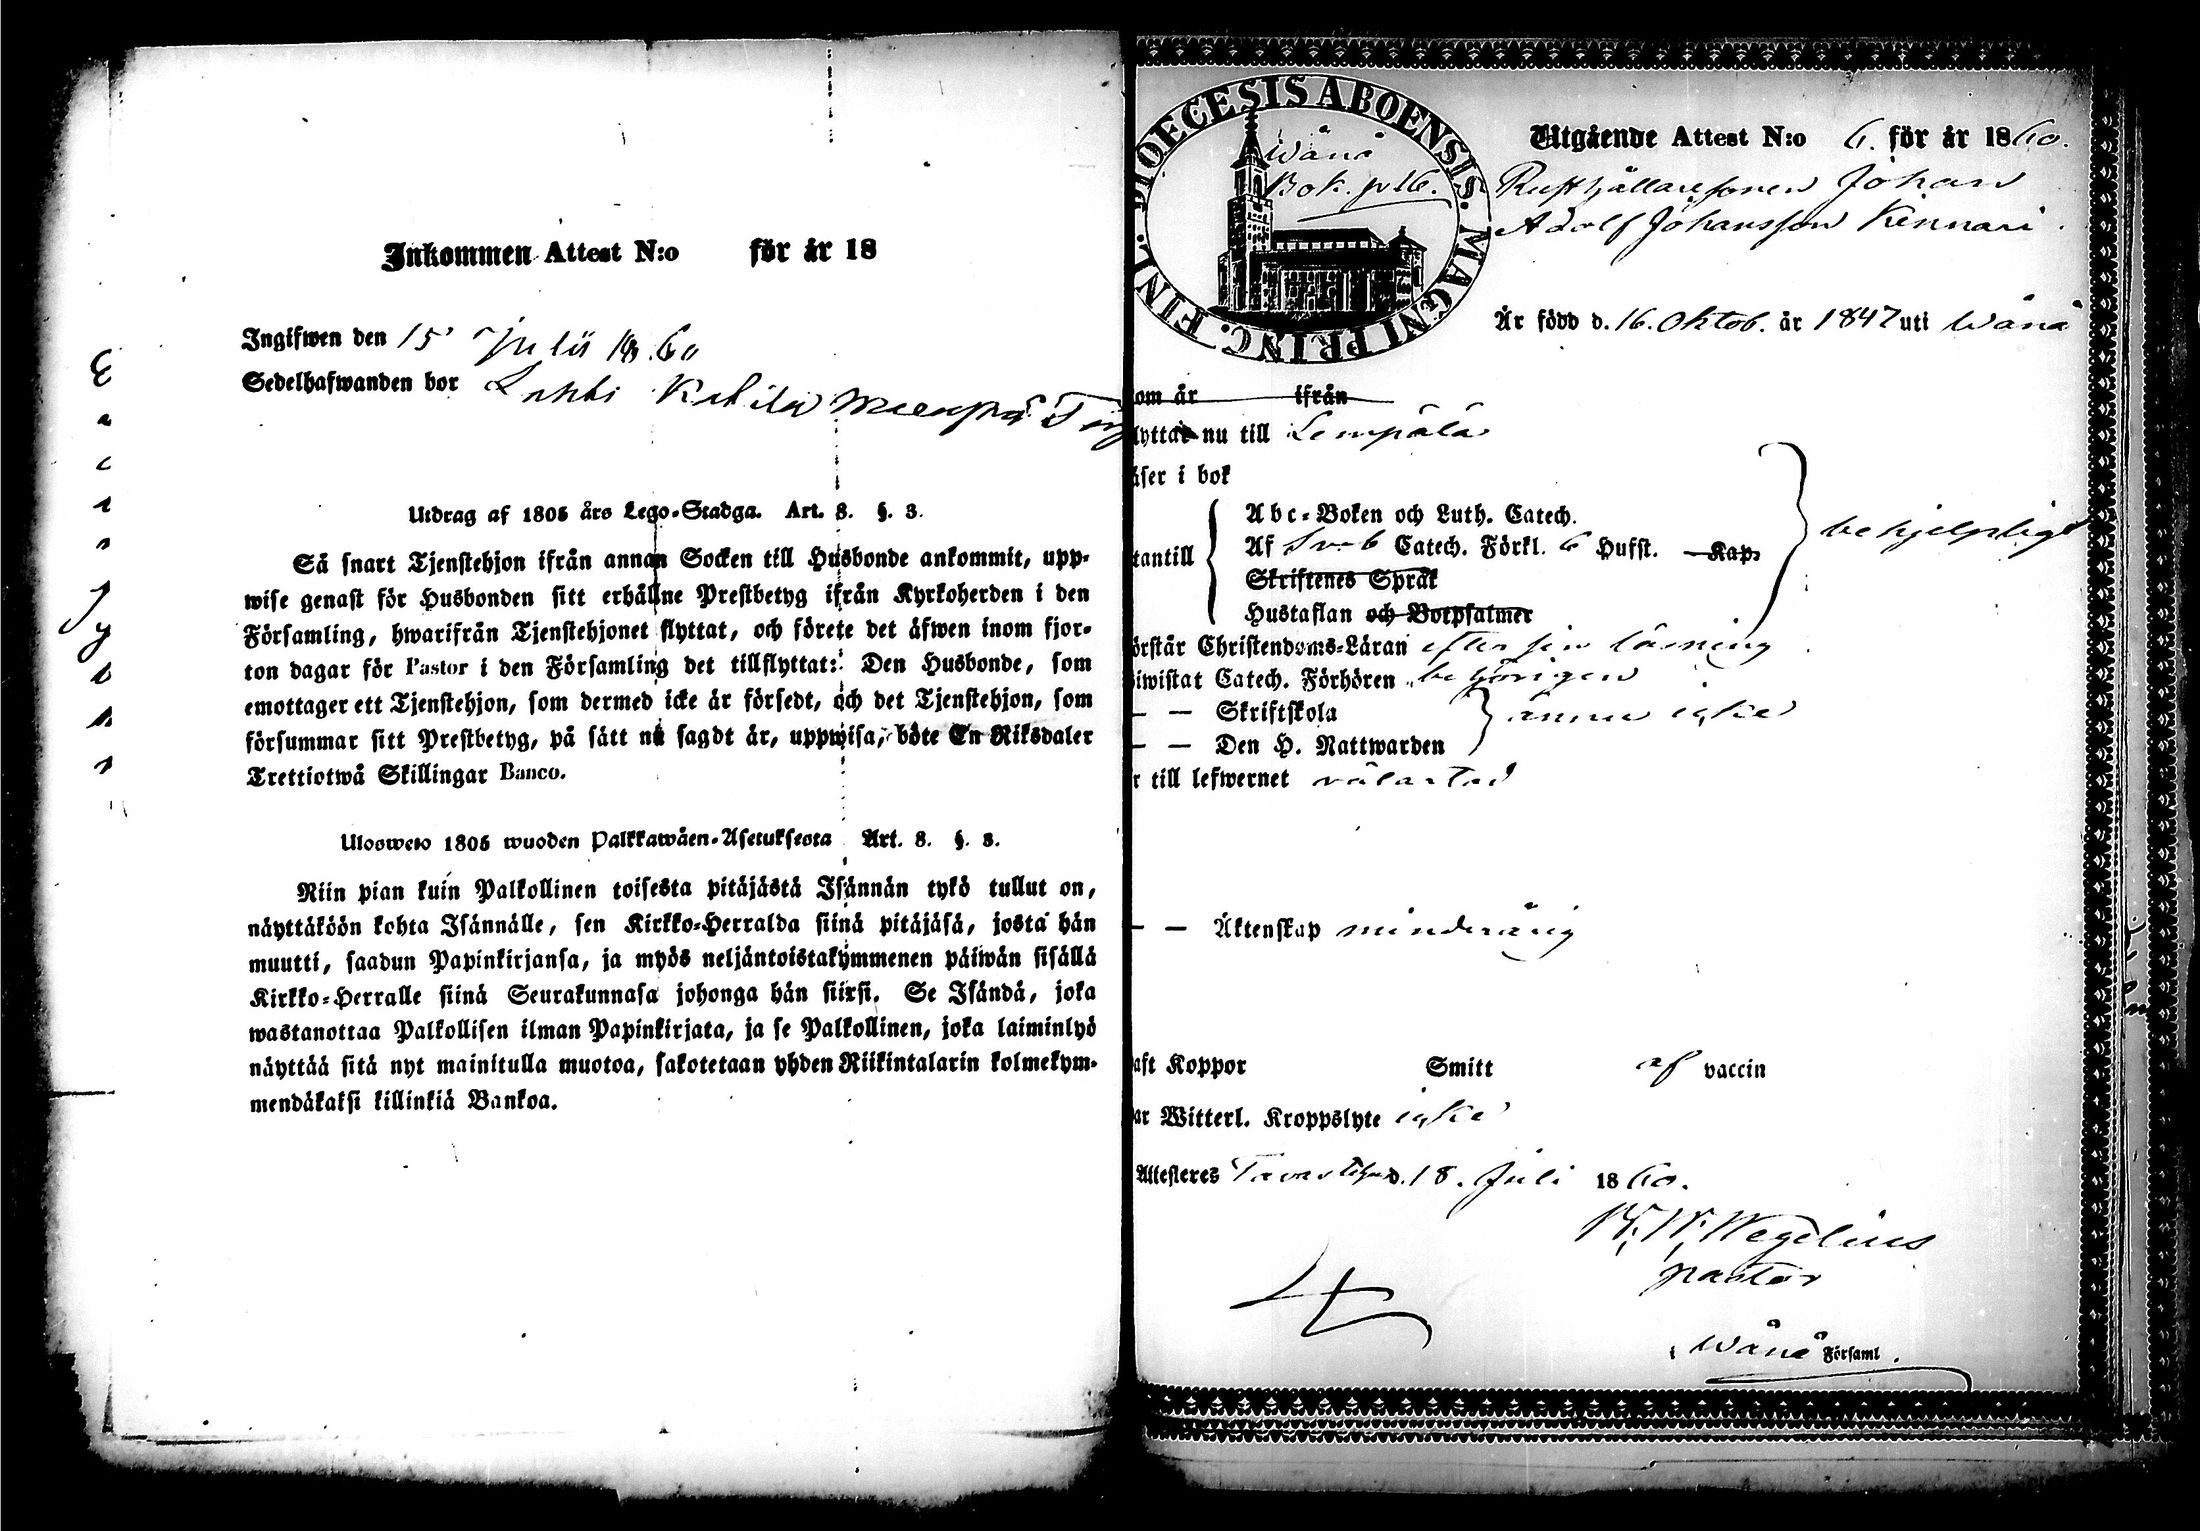 Inkommen Attest N:o för år 18
Ingifwen den 15 Julii 1860
Sedelhafwanden bor Lahti
Utdrag af 1805 års Lego-Stadga. Art. 8. §. 3.
Så snart Tjenstehjon ifrån annan Socken till Husbonde ankommit, upp-
wise genast för Husbonden sitt erhållne Prestbetyg ifrån Kyrkoherden i den
Församling, hwarifrån Tjenstehjonet flyttat, och förete det äfwen inom fjor-
ton dagar för Pastor i den Församling det tillflyttat: Den Husbonde, som
emottager ett Tjenstehjon, som dermed icke är försedt, och det Tjenstehjon, som
försummar sitt Prestbetyg, på sätt nu sagdt är, uppwisa, böte En Riksdaler
Trettiotwå Skillingar Banco.
Ulosweto 1805 wuoden Palkkawäen-Asetuksesta Art. 8. §. 3.
Niin pian kuin Palkollinen toisesta pitäjästä Isännän tykö tullut on,
näyttäköön kohta Isännälle, sen Kirkko-Herralda siinä pitäjäsä, josta hän
muutti, saadun Papinkirjansa, ja myös neljäntoistakymmenen päiwän sisällä
Kirkko-Herralle siinä Seurakunnasa johonga hän siirsi. Se Isändä, joka
wastanottaa Palkollisen ilman Papinkirjata, ja se Palkollinen, joka laiminlyö
näyttää sitä nyt mainitulla muotoa, sakotetaan yhden Riikintalarin kolmekym-
mendäkaksi killinkiä Bankoa.
DIOECESIS ABOENSIS. MAGNI PRINC. FINL.
Wånå
Bok. p 16.
Utgående Attest N:o 6. för år 1860.
Rusthållaresonen Johan
Adolf Johansson Kinnari.
Är född d. 16. Oktob. år 1847 uti Wånå
om är ifrån
lyttar nu till Lempälä
äser i bok
Abc-Boken och Luth. Catech.
Af Sveb Catech. Förkl. 6 Hufst. Kap.
tantill
Skriftenes Språk
Hustaflan och Botpsalmer
behjelpligt
örstår Christendoms-Läran efter sin läsning
iwistat Catech. Förhören behörigen
— — Skriftskola
— — Den H. Nattwarden
ännu icke
r till lefwernet välartad
— — Äktenskap minderårig
aft Koppor Smitt af vaccin
ar Witterl. Kroppslyte icke
Attesteres Tavastehus d. 18. Juli 1860.
W. Wegelius
pastor
i Wånå Församl.